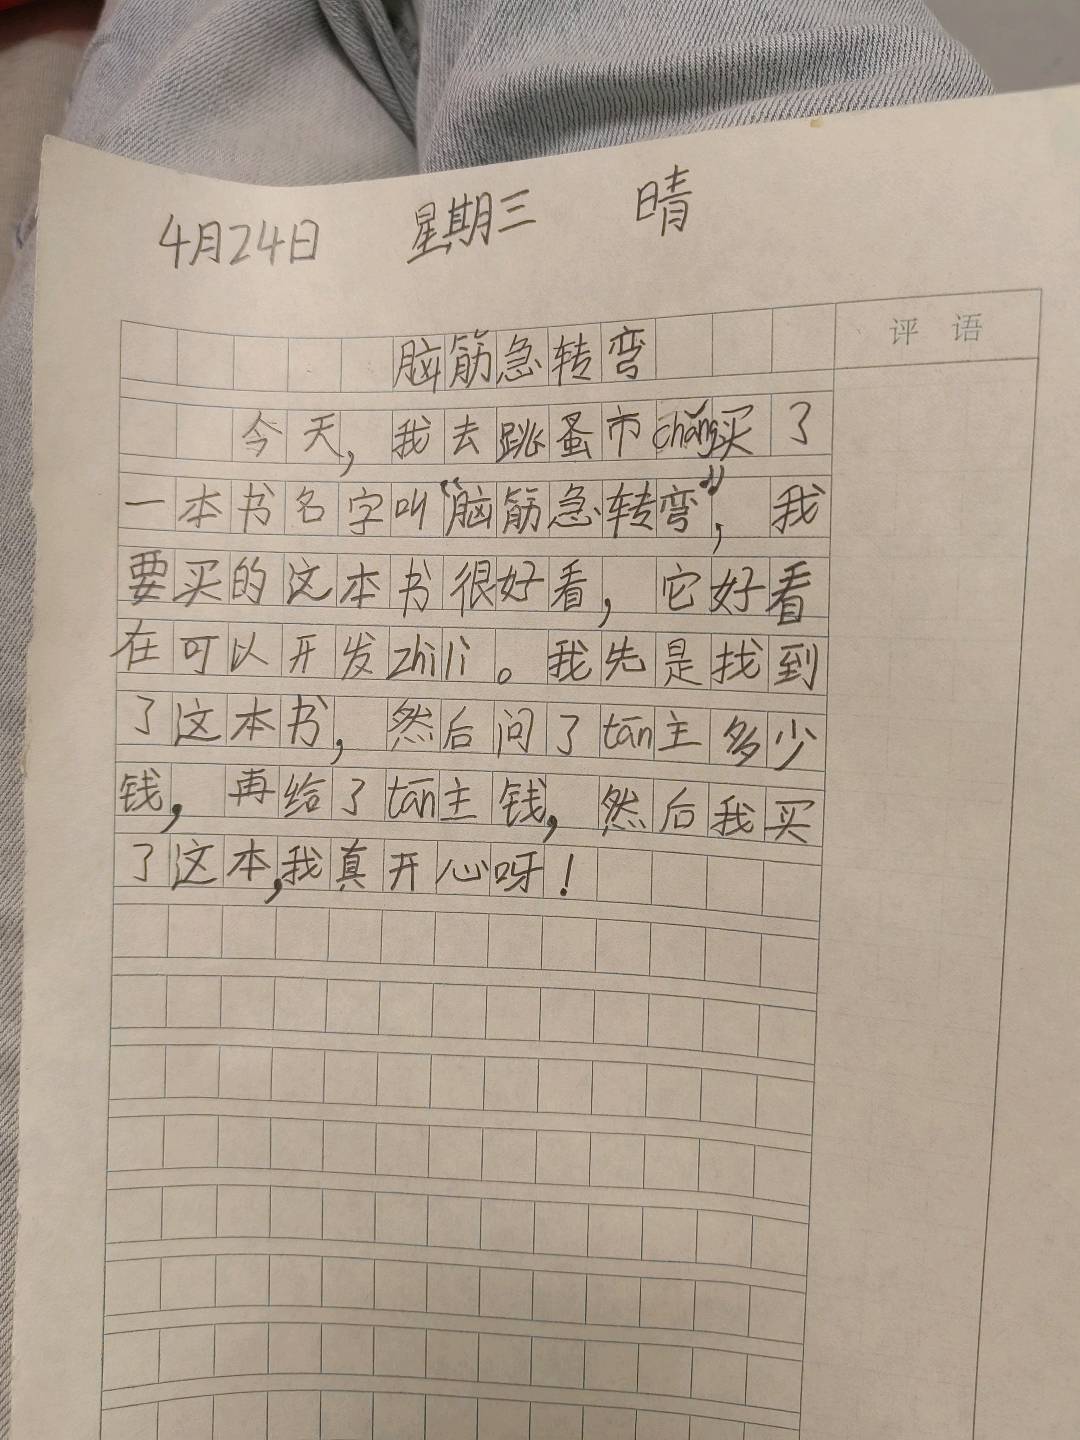 4月24日 星期三 晴
脑筋急转弯
评语
今天，我去跳蚤市chǎng买了
一本书名字叫“脑筋急转弯”，我
要买的这本书很好看，它好看
在可以开发zhili。我先是找到
了这本书，然后问了tān主多少
钱，再给了tān主钱，然后我买
了这本，我真开心呀！